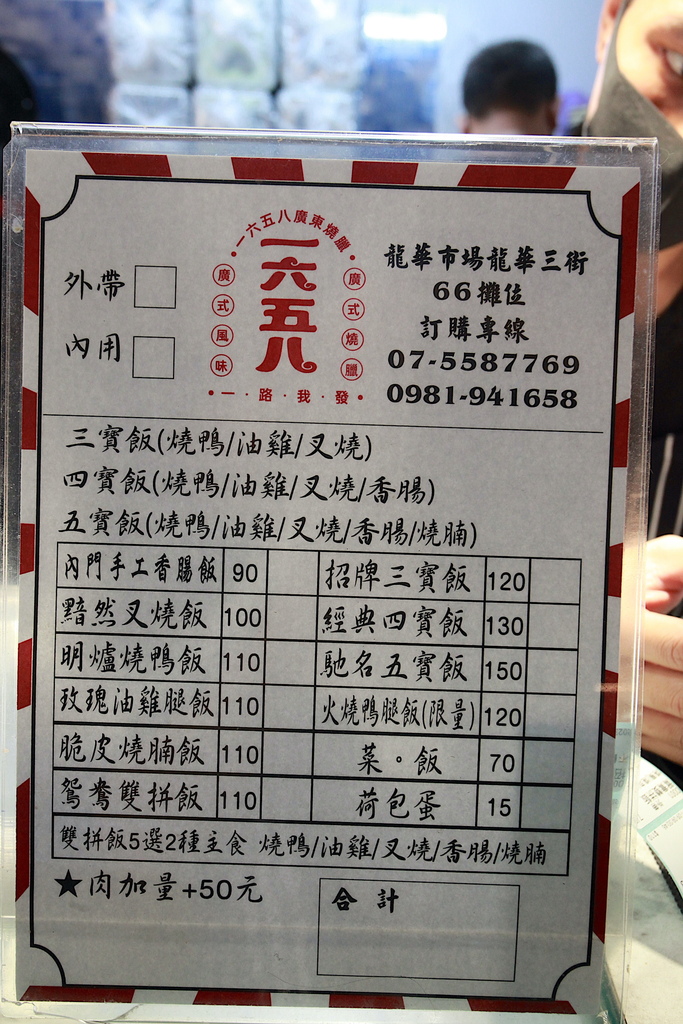 外帶
內用
•一六五八廣東燒臘•
一六五八
廣式風味
廣式燒臘
•一・路・我・發•
龍華市場龍華三街
66攤位
訂購專線
07-5587769
0981-941658
三寶飯(燒鴨/油雞/叉燒)
四寶飯(燒鴨/油雞/叉燒/香腸)
五寶飯(燒鴨/油雞/叉燒/香腸/燒腩)
內門手工香腸飯 90 招牌三寶飯 120
黯然叉燒飯 100 經典四寶飯 130
明爐燒鴨飯 110 馳名五寶飯 150
玫瑰油雞腿飯 110 火燒鴨腿飯(限量) 120
脆皮燒腩飯 110 菜。飯 70
鴛鴦雙拼飯 110 荷包蛋 15
雙拼飯5選2種主食 燒鴨/油雞/叉燒/香腸/燒腩
★肉加量+50元
合計